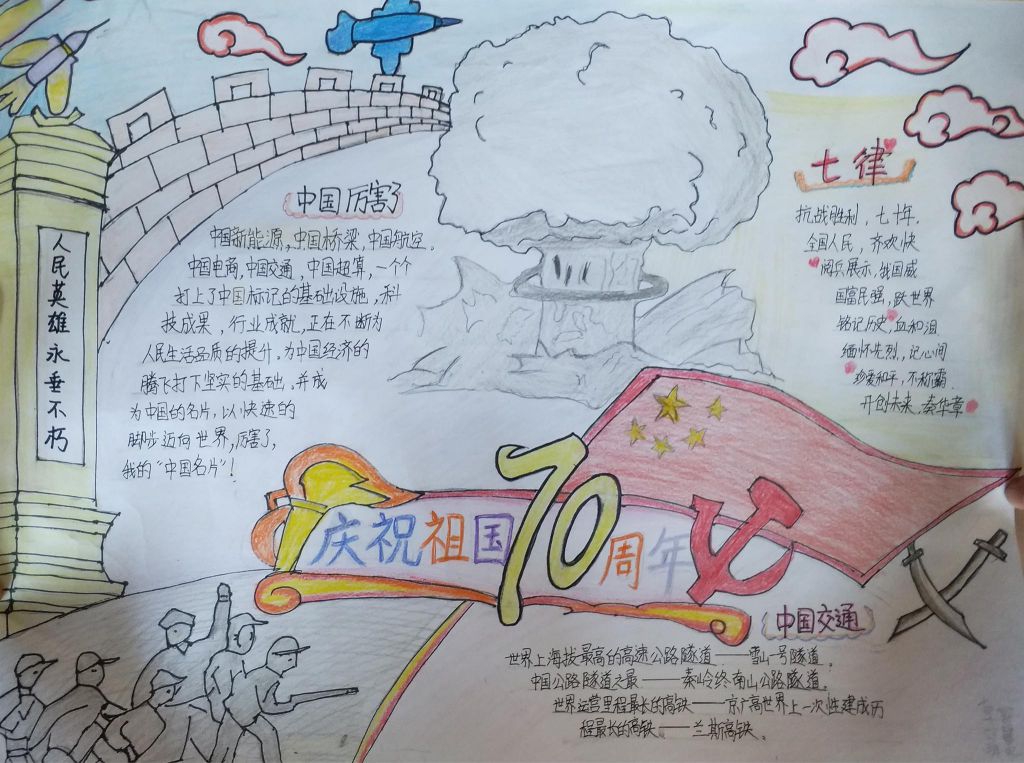 人民英雄永垂不朽
中国厉害了
中国新能源,中国桥梁,中国航空。
中国电商,中国交通,中国超算,一个个
打上了中国标记的基础设施,科
技成果,行业成就,正在不断为
人民生活品质的提升。为中国经济的
腾飞打下坚实的基础。并成
为中国的名片,以快速的
脚步迈向世界,厉害了,
我的“中国名片”!
七律
抗战胜利,七十年.
全国人民,齐欢快
阅兵展示,我国威
国富民强,跃世界
铭记历史,血和泪
缅怀先烈,记心间
珍爱和平,不称霸.
开创未来.奏华章
庆祝祖国70周年
中国交通
世界上海拔最高的高速公路隧道——雪山一号隧道。
中国公路隧道之最——秦岭终南山公路隧道。
世界运营里程最长的高铁——京广高世界上一次性建成历
程最长的高铁——兰斯高铁。